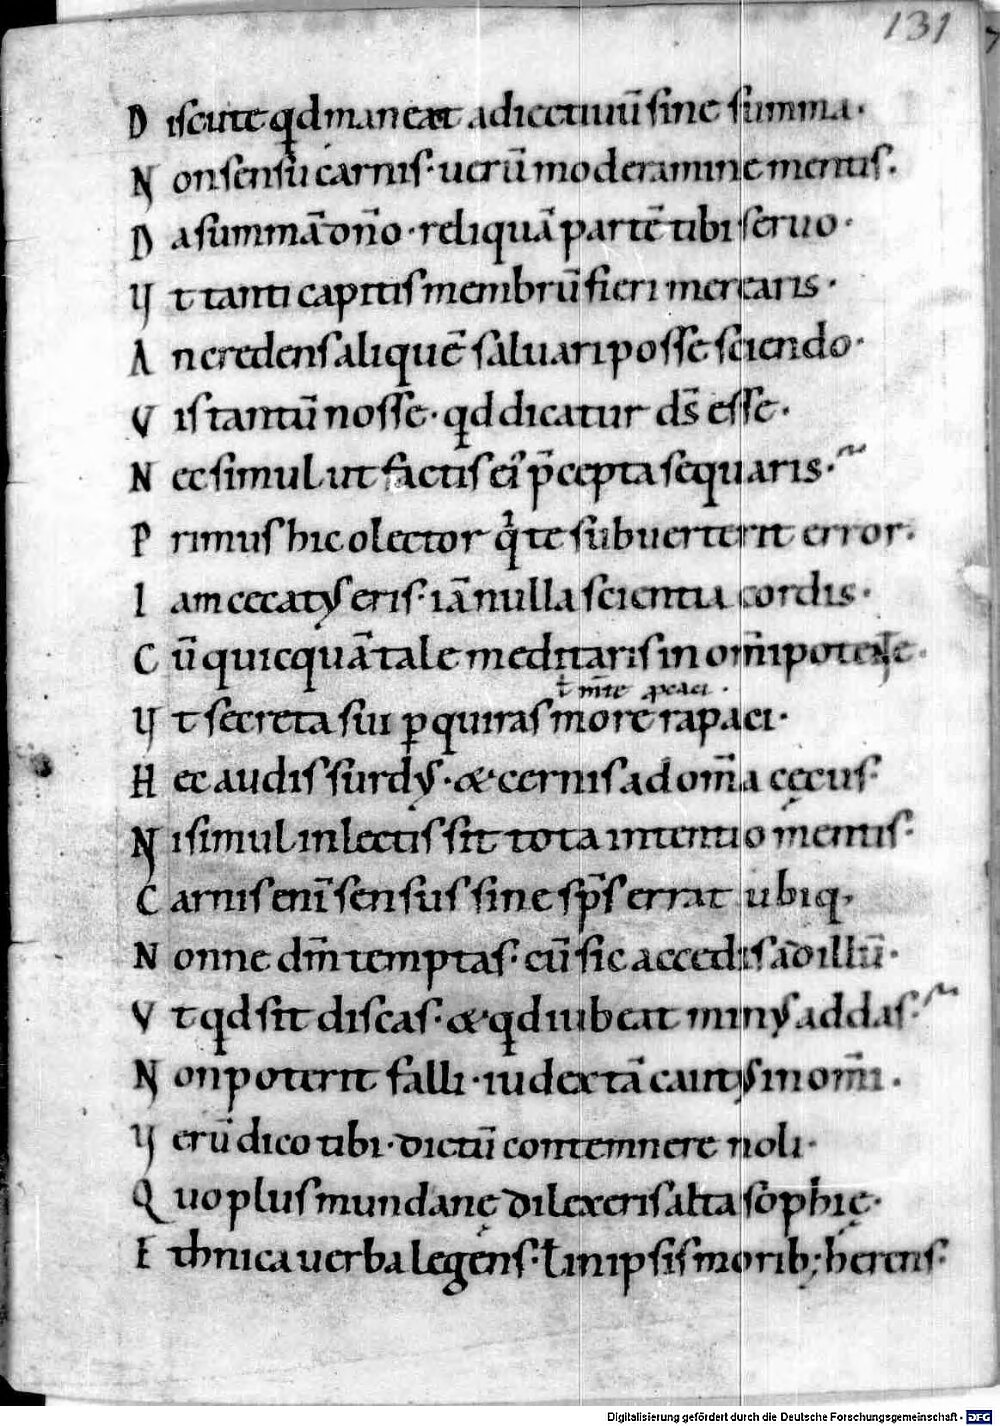 131
Discute qđ maneat adiectiuũ sine summa·
Non sensu carnis· uerũ moderamine mentis·
Da summã dño· reliquã partẽ tibi seruo·
Vt tanti capitis membrũ fieri merearis·
An credens aliquẽ saluari posse sciendo·
Vis tantũ nosse· qđ dicatur ds̄ esse·
Nec simul ut factis ei᾽ p̄cepta sequaris·
Primus hic o lector q̇ te subuerterit error·
Iam cecatus eris· iã nulla scientia cordis·
Cũ quicquã tale meditaris in om̄ipotente·
ƚ m̄te ꝓcaci·
Vt secreta sui ꝑquiras more rapaci·
Hec audis surdus· & cernis adom̄a cęcus·
Ni simul in lectis sit tota intentio mentis·
Carnis enĩ sensus sine sp̄s errat ubiq,
Nonne dm̄ temptas· cũ sic accedis ad illũ·
Vt qđ sit discas· & qđ iubeat minus addas·
Non poterit falli· iudex tã cautus in om̄i·
Verũ dico tibi· dictũ contemnere noli·
Quo plus mundanę dilexeris alta sophię·
Ethnica uerba legens· ƚ in ipsis morib; herens·
Digitalisierung gefördert durch die Deutsche Forschungsgemeinschaft - DFG